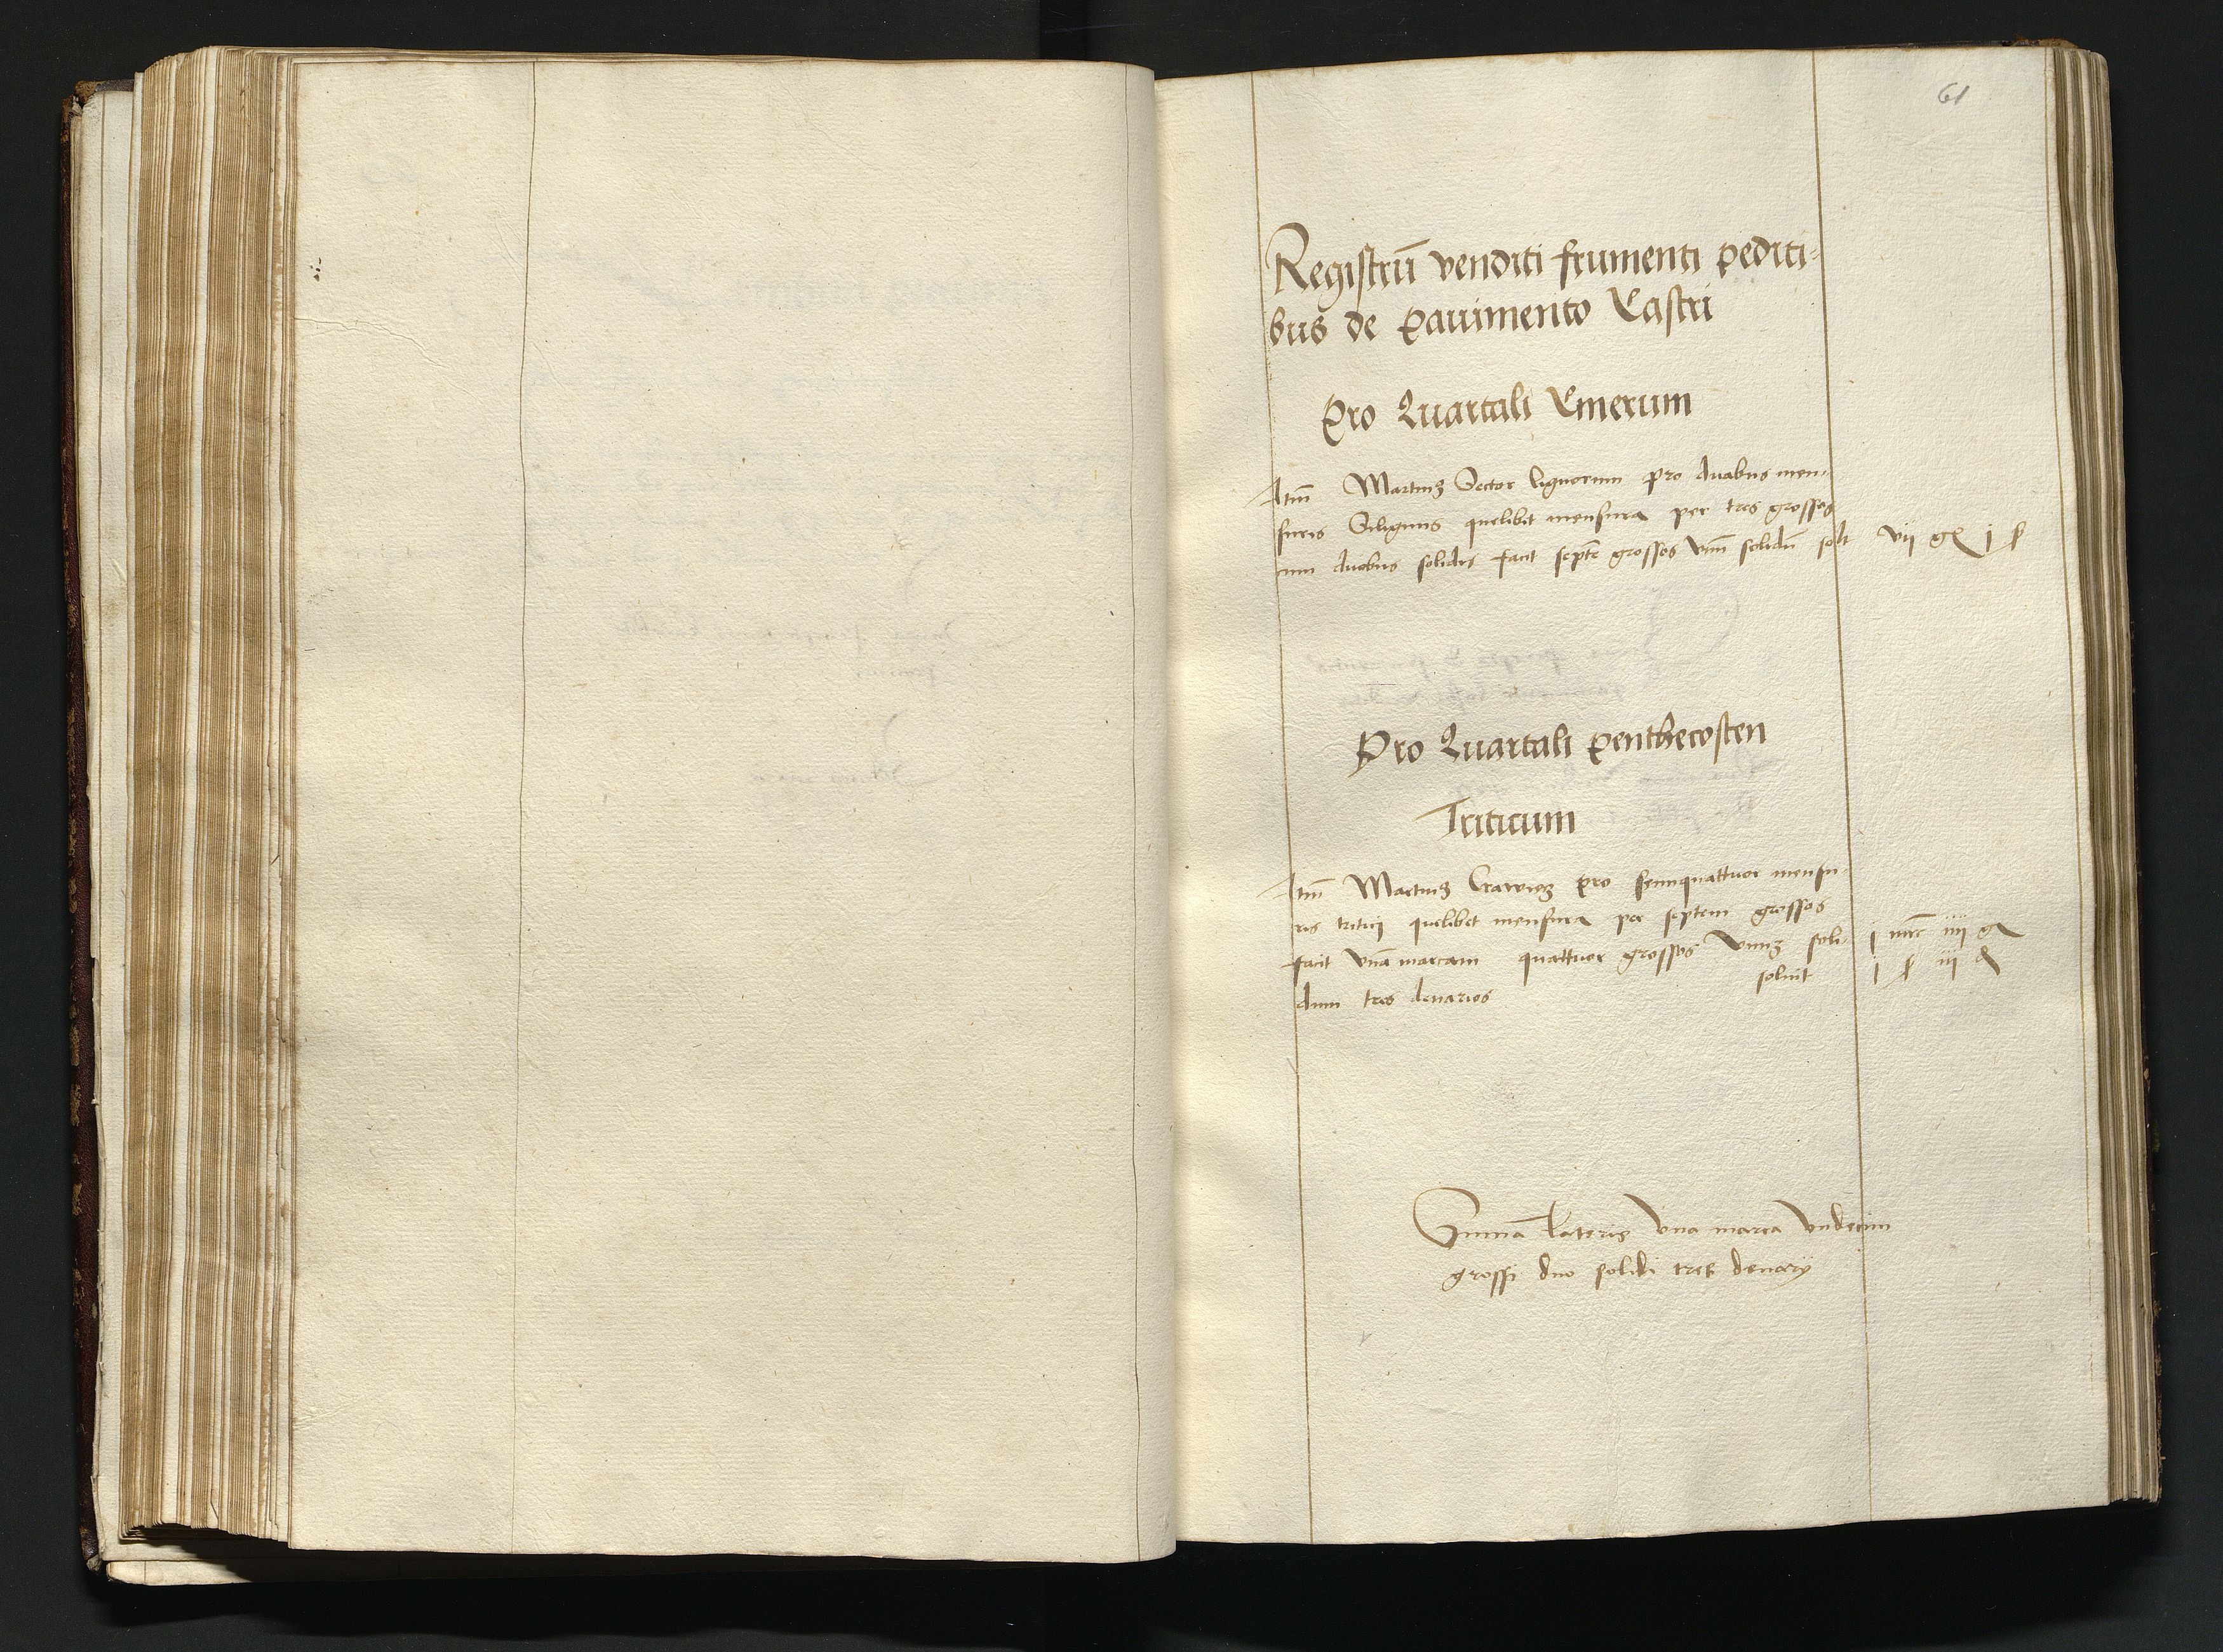 61
Registrū venditi frumenti pediti-
bus de pavimento Castri
Pro Quartali Cinerum
Itm̄ Martinꝫ Sector lignorum pro duabus men-
suris Siliginis quelibet mensura per tres grossos
cum duobus solidis facit septē grossos vnū solidū solt vij gͬ j ſ
Pro Quartali penthecosten
Triticum
Itm̄ Martinꝫ pro semiquattuor mensu-
ris tritici quelibet mensura per septem grossos
facit vnā marcam quattuor grossos vnuꝫ soli- j mrc iiij gͬ
dum tres denarios soluit j ſ iij d
Summa lateris vna marca vndecim
grossi duo solidi tres denarij